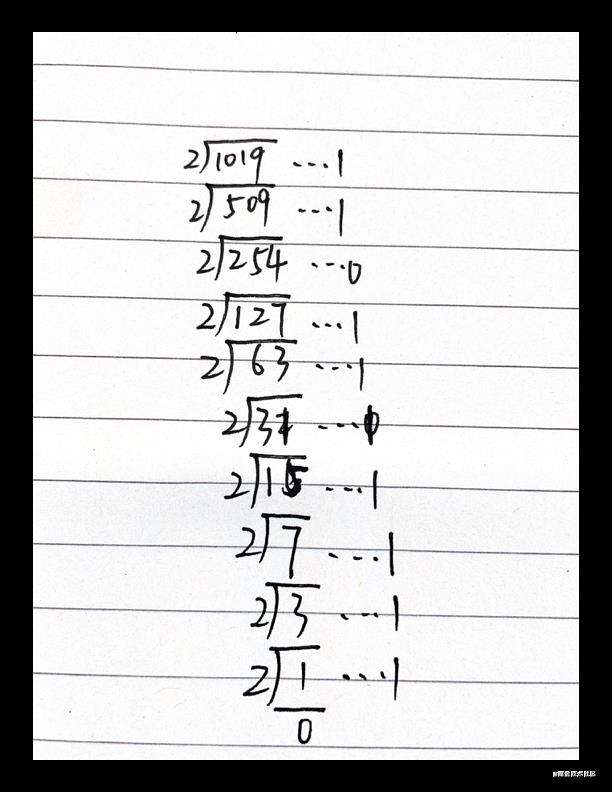 2)1019 ...1
2)509 ...1
2)254 ...0
2)127 ...1
2)63 ...1
2)31 ...1
2)15 ...1
2)7 ...1
2)3 ...1
2)1 ...1
0